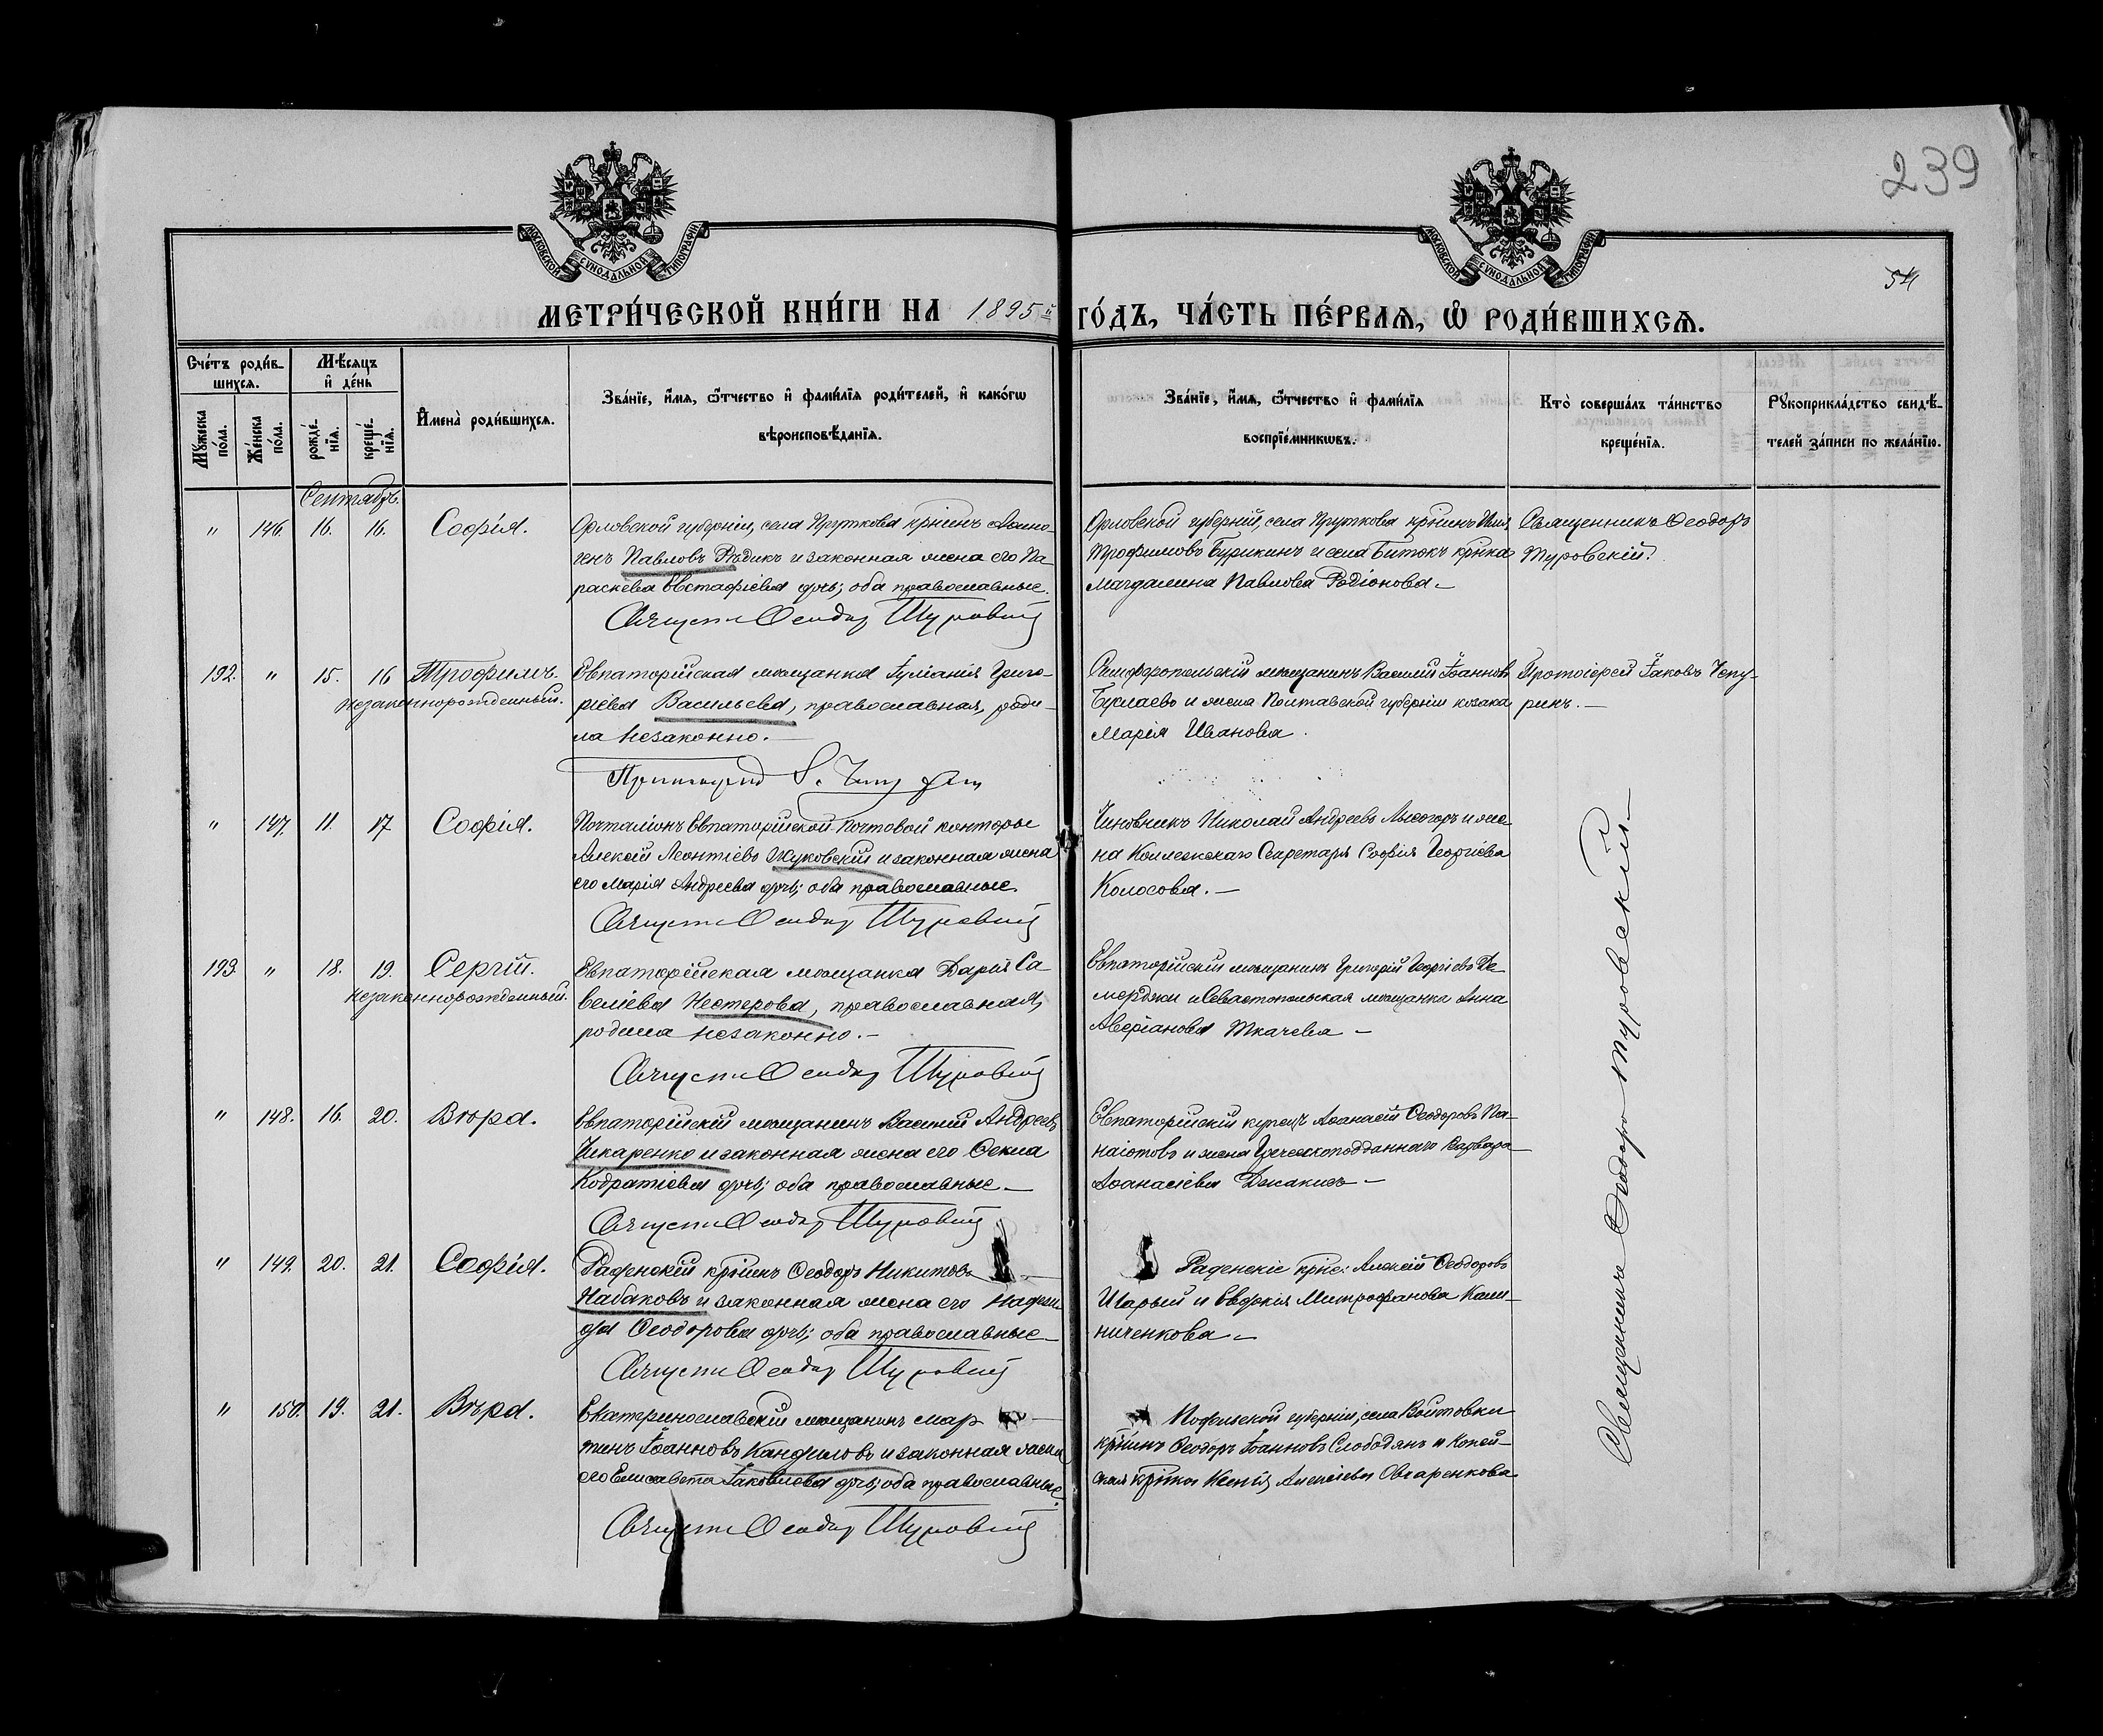 239
МОСКОВСКОЙ СѴНОДАЛЬНОЙ ТИПОГРАФІИ
МОСКОВСКОЙ СѴНОДАЛЬНОЙ ТИПОГРАФІИ
54
МЕТРИ́ЧЕСКОЙ КНИ́ГИ НА 1895й ГО́ДЪ, ЧА́СТЬ ПЕ́РВАЯ, Ѽ РОДИ́ВШИХСѦ.
Сче́тъ роди́в-
шихсѧ.
Мѣ́сѧцъ
и҆ де́нь
Мꙋ́жеска
по́ла.
Же́нска
по́ла.
рожде́-
нїѧ.
креще́-
нїѧ.
И҆мена̀ роди́вшихсѧ.
Зва́нїе, и҆́мѧ, ѻ҆́тчество и҆ фами́лїѧ роди́телей, и҆ како́гѡ
вѣроисповѣ́данїѧ.
Зва́нїе, и҆́мѧ, ѻ҆́тчество и҆ фами́лїѧ
воспрїе́мникѡвъ.
Кто̀ соверша́лъ та́инство
креще́нїѧ.
Рꙋкоприкла́дство свидѣ́-
телей за́писи по жела́нїю.
Сентябрь.
" 146. 16. 16. Софія.
Орловской губерніи, села Пруткова крнинъ Аѳино-
генъ Павловъ Рѣдикъ и законная жена его Па-
раскева Евстафіева дочь; оба православные.
Священникъ Ѳеодоръ Туровскій
Орловской губерніи, села Пруткова крнинъ Илія
Трофимовъ Бурикинъ и села Битокъ крнка
Магдалина Павлова Родіонова –
Священникъ Ѳеодоръ
Туровскій.
192. " 15. 16 Трофимъ.
незаконнорожденный.
Евпаторійская мѣщанка Іуліанія Григо-
ріева Васильева, православная, роди-
ла незаконно. –
Протоіерей Я. Чепуринъ
Симферопольскій мѣщанинъ Василій Іоанновъ
Буклаевъ и жена Полтавской губерніи козака
Марія Иванова.
Протоіерей Іаковъ Чепу-
ринъ. –
" 147. 11. 17 Софія.
Почталіонъ Евпаторійской Почтовой конторы
Алексій Леонтіевъ Жуковскій и законная жена
его Марія Андреева дочь; оба православные.
Священникъ Ѳеодоръ Туровскій
Чиновникъ Николай Андреевъ Лысогоръ и же-
на Коллежскаго Секретаря Софія Георгіева
Колосова. –
193. " 18. 19. Сергій.
незаконнорожденный.
Евпаторійская мѣщанка Дарія Са-
веліева Нестерова, православная,
родила незаконно. –
Священникъ Ѳеодоръ Туровскій
Евпаторійскій мѣщанинъ Григорій Георгіевъ Де-
мерджи и Севастопольская мѣщанка Анна
Аверіанова Ткачева –
" 148. 16. 20. Вѣра.
Евпаторійскій мѣщанинъ Василій Андреевъ
Чикаренко и законная жена его Ѳекла
Кодратіева дочь; оба православные –
Священникъ Ѳеодоръ Туровскій
Евпаторійскій купецъ Аѳанасій Ѳеодоровъ Па-
наіотовъ и жена Греческоподданнаго Варвара
Аѳанасіева
" 149. 20. 21. Софія.
Раденскій крнинъ Ѳеодоръ Никитовъ –
Набаковъ и законная жена его Надеж-
да Ѳеодорова дочь; оба православные –
Священникъ Ѳеодоръ Туровскій
Раденскіе крне: Алексій Ѳеодоровъ
Шарый и Евдокія Митрофанова Кали-
ниченкова –
" 150. 19. 21. Вѣра.
Екатеринославскій мѣщанинъ Мар –
тинъ Іоанновъ Канфиловъ и законная жена
его Елисавета Іаковлева дочь; оба православные.
Священникъ Ѳеодоръ Туровскій
Подольской губерніи, села Войтовки
крнинъ Ѳеодоръ Іоанновъ Слободянъ и Копей-
ская крнка Ксенія Алексіева Овчаренкова
Священникъ Ѳеодоръ Туровскій –